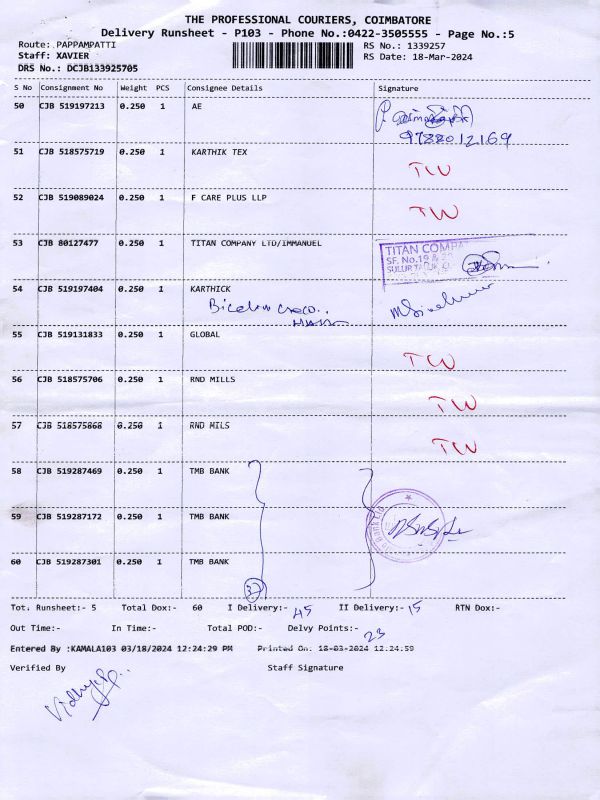 THE PROFESSIONAL COURIERS, COIMBATORE
Delivery Runsheet - P103 - Phone No.:0422-3505555 - Page No.:5
Route: PAPPAMPATTI
Staff: XAVIER
DRS No.: DCJB133925705
RS No.: 1339257
RS Date: 18-Mar-2024
S No Consignment No Weight PCS Consignee Details Signature
50 CJB 519197213 0.250 1 AE
9788012169
51 CJB 518575719 0.250 1 KARTHIK TEX TW
52 CJB 519089024 0.250 1 F CARE PLUS LLP TW
53 CJB 80127477 0.250 1 TITAN COMPANY LTD/IMMANUEL
TITAN COMPA
SF. No.19 &
SULUR TALUK,
54 CJB 519197404 0.250 1 KARTHICK
55 CJB 519131833 0.250 1 GLOBAL TW
56 CJB 518575706 0.250 1 RND MILLS TW
57 CJB 518575868 0.250 1 RND MILS TW
58 CJB 519287469 0.250 1 TMB BANK
59 CJB 519287172 0.250 1 TMB BANK
60 CJB 519287301 0.250 1 TMB BANK
37
Tot. Runsheet:- 5 Total Dox:- 60 I Delivery:- 45 II Delivery:- 15 RTN Dox:-
Out Time:- In Time:- Total POD:- Delvy Points:- 23
Entered By :KAMALA103 03/18/2024 12:24:29 PM Printed On: 18-03-2024 12:24:59
Verified By Staff Signature